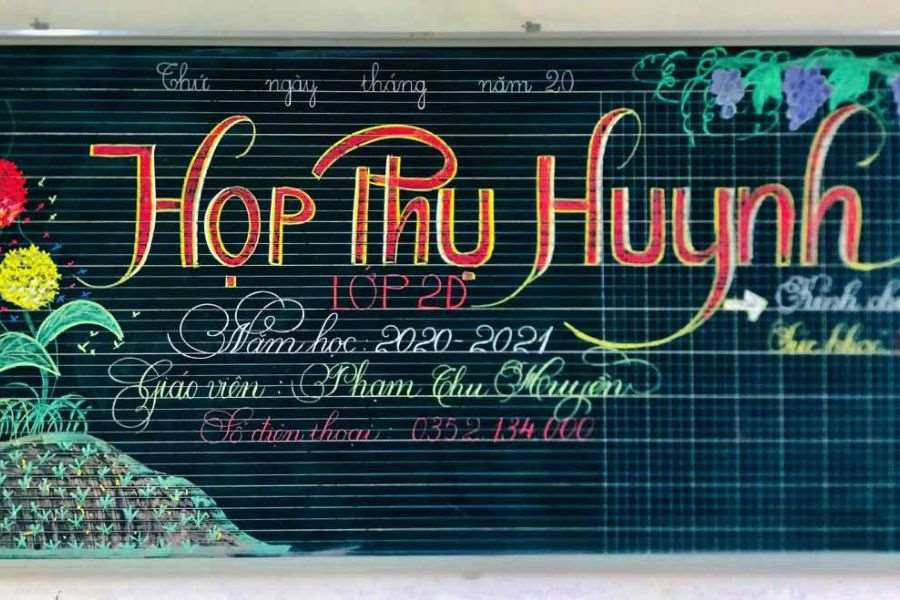 Thứ ngày tháng năm 20
Họp Phụ Huynh
LỚP 2D
Năm học: 2020-2021
Giáo viên: Phạm Thu Huyền
Số điện thoại: 0352.134.000
Kính ch
Sức khỏe